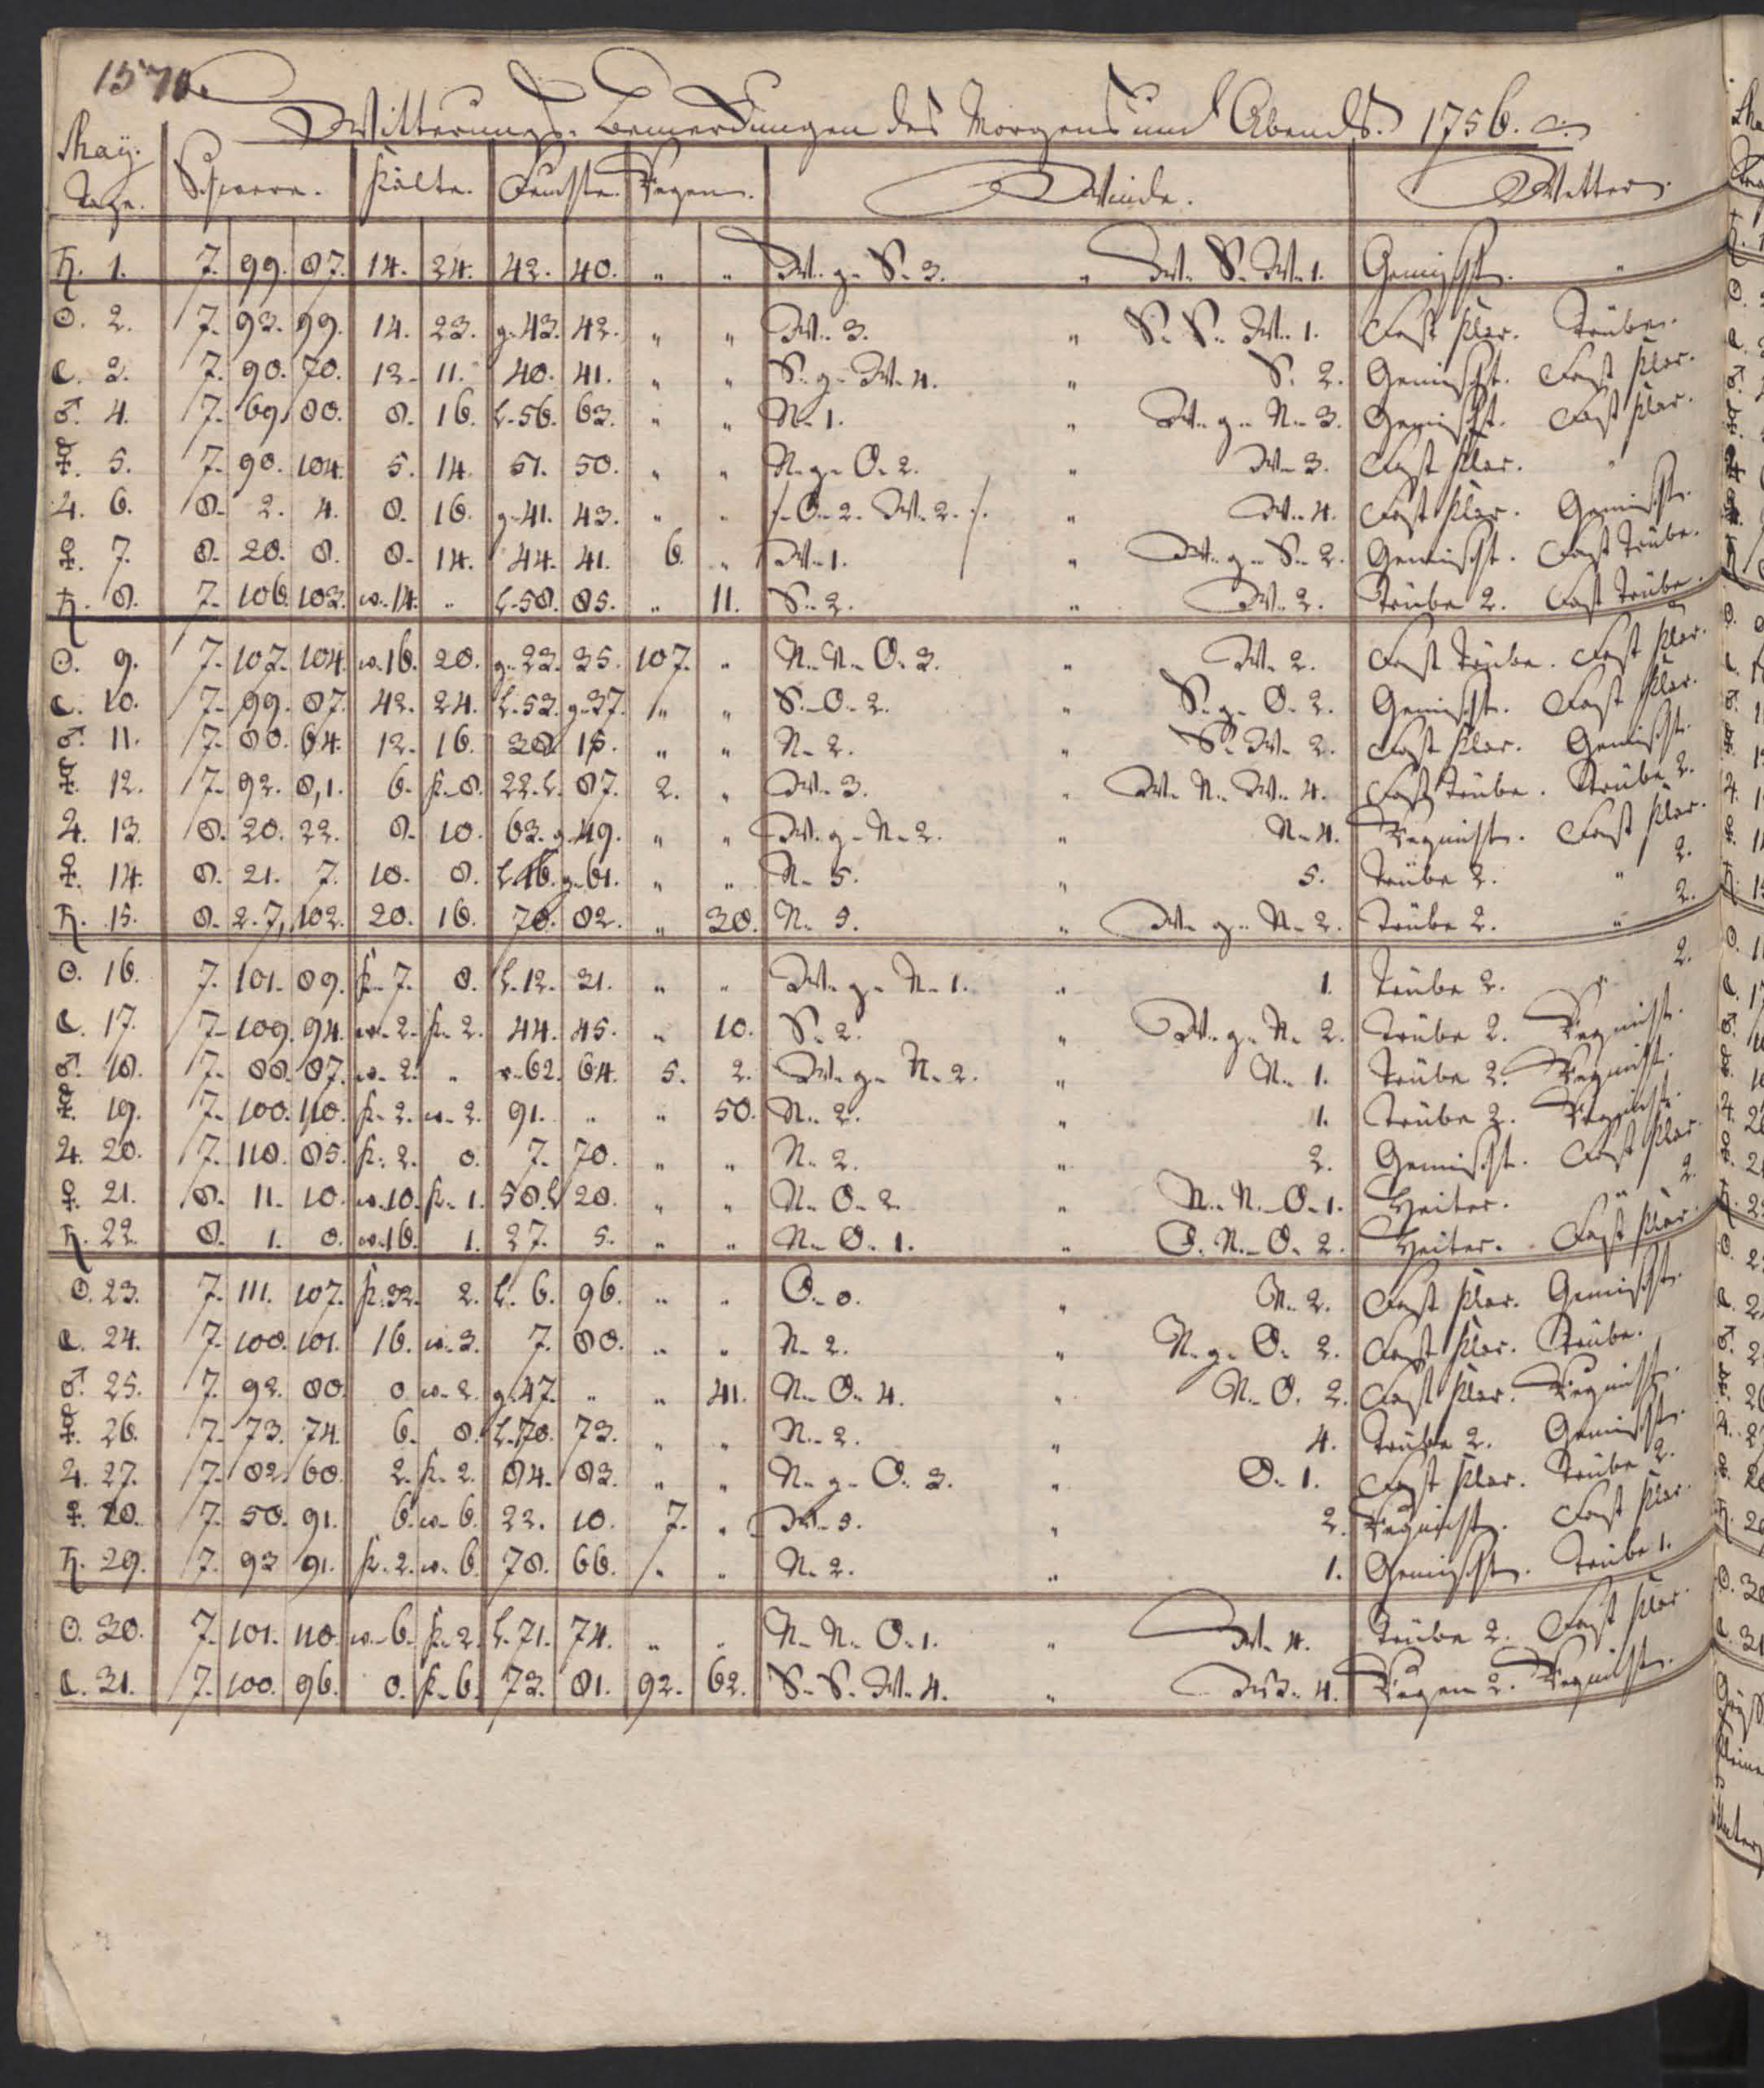 1570.
Witterungs-Bemerckungen des Morgens und Abends. 1756. a.
May. Tage. Schwere. Kälte. Feuchte. Regen. Winde. Wetter.
♄. 1. 7. 99. 87. 14. 24. 42. 40. „ „ W. g. S. 3. „ W. S. W. 1. Gemischt. „
☉. 2. 7. 93. 99. 14. 23. g. 43. 42. „ „ W. 3. „ S. S. W. 1. Fast klar. Trübe.
☾. 3. 7. 90. 70. 13. 11. 40. 41. „ „ S. g. W. 4. „ S. 2. Gemischt. Fast klar.
♂. 4. 7. 69. 80. 8. 16. l. 56. 63. „ „ N. 1. „ W. g. N. 3. Gemischt. Fast klar.
☿. 5. 7. 98. 104. 5. 14. 51. 50. „ „ N. g. O. 2. „ W. 3. Fast klar. „
♃. 6. 8. 2. 4. 8. 16. g. 41. 43. „ „ /. O. 2. W. 2. /. „ W. 4. Fast klar. Gemischt.
♀. 7. 8. 20. 8. 8. 14. 44. 41. 6. „ W. 1. „ W. g. S. 2. Gemischt. Fast Trübe.
♄. 8. 7. 106. 103. w. 14. „ l. 58. 85. „ 11. S. 2. „ W. 2. Trübe 2. Fast Trübe.
☉. 9. 7. 107. 104. w. 16. 20. g. 23. 35. 107. „ N. N. O. 3. „ W. 2. Fast Trübe. Fast klar.
☾. 10. 7. 99. 87. 42. 24. l. 53. g. 37. „ „ S. O. 2. „ S. g. O. 2. Gemischt. Fast klar.
♂. 11. 7. 80. 64. 12. 16. 38. 15. „ „ N. 2. „ S. W. 2. Fast klar. Gemischt.
☿. 12. 7. 92. 8,1. 6. k. 8. 22. l. 87. 2. „ W. 3. „ W. N. W. 4. Fast Trübe. Trübe 2.
♃. 13. 8. 20. 22. 8. 10. 63. g. 49. „ „ W. g. N. 2. „ N. 4. Regnicht. Fast klar.
♀. 14. 8. 21. 7. 10. 8. l. 46. g. 61. „ „ N. 5. „ 5. Trübe 2. „ 2.
♄. 15. 8. 2. 7,102. 20. 16. 78. 82. „ 30. N. 5. „ W. g. N. 2. Trübe 2. „ 2.
☉. 16. 7. 101. 89. k. 7. 8. l. 12. 31. „ „ W. g. N. 1. „ 1. Trübe 2. „ 2.
☾. 17. 7. 109. 94. w. 2. k. 2. 44. 45. „ 10. S. 2. „ W. g. N. 2. Trübe 2. Regnicht.
♂. 18. 7. 88. 87. w. 2. „ 62. 64. 5. 2. W. g. N. 2. „ N. 1. Trübe 2. Regnicht.
☿. 19. 7. 100. 110. k. 2. w. 2. 91. „ „ 50. N. 2. „ 1. Trübe 2. Regnicht.
♃. 20. 7. 118. 85. k. 2. 0. 7. 70. „ „ N. 2. „ 2. Gemischt. Fast klar.
♀. 21. 8. 11. 10. w. 10. k. 1. 58. l. 28. „ „ N. O. 2. „ N. N. O. 1. Heiter. „ 2.
♄. 22. 8. 1. 0. w. 16. 1. 27. 5. „ „ N. O. 1. „ O. N. O. 2. Heiter. Fast klar.
☉. 23. 7. 111. 107. k. 32. 2. l. 6. 96. „ „ O. 0. „ N. 2. Fast klar. Gemischt.
☾. 24. 7. 108. 101. 16. w. 3. 7. 88. „ „ N. 2. „ N. g. O. 2. Fast klar. Trübe.
♂. 25. 7. 92. 80. 0. w. 2. g. 47. „ „ 41. N. O. 4. „ N. O. 2. Fast klar. Regnicht.
☿. 26. 7. 73. 74. 6. 8. l. 70. 73. „ „ N. 2. „ 4. Trübe 2. Gemischt.
♃. 27. 7. 82. 60. 2. k. 2. 84. 83. „ „ N. g. O. 3. „ O. 1. Fast klar. Trübe 2.
♀. 28. 7. 50. 91. 6. w. 6. 22. 10. 7. „ W. 5. „ 2. Regnicht. Fast klar.
♄. 29. 7. 93. 91. k. 2. w. 6. 78. 66. „ „ N. 2. „ 1. Gemischt. Trübe 1.
☉. 30. 7. 101. 110. w. 6. k. 2. l. 71. 74. „ „ N. N. O. 1. „ W. 4. Trübe 2. Fast klar.
☾. 31. 7. 100. 96. 0. k. 6. 73. 81. 92. 62. S. S. W. 4. „ W. 4. Regen 2. Regnicht.